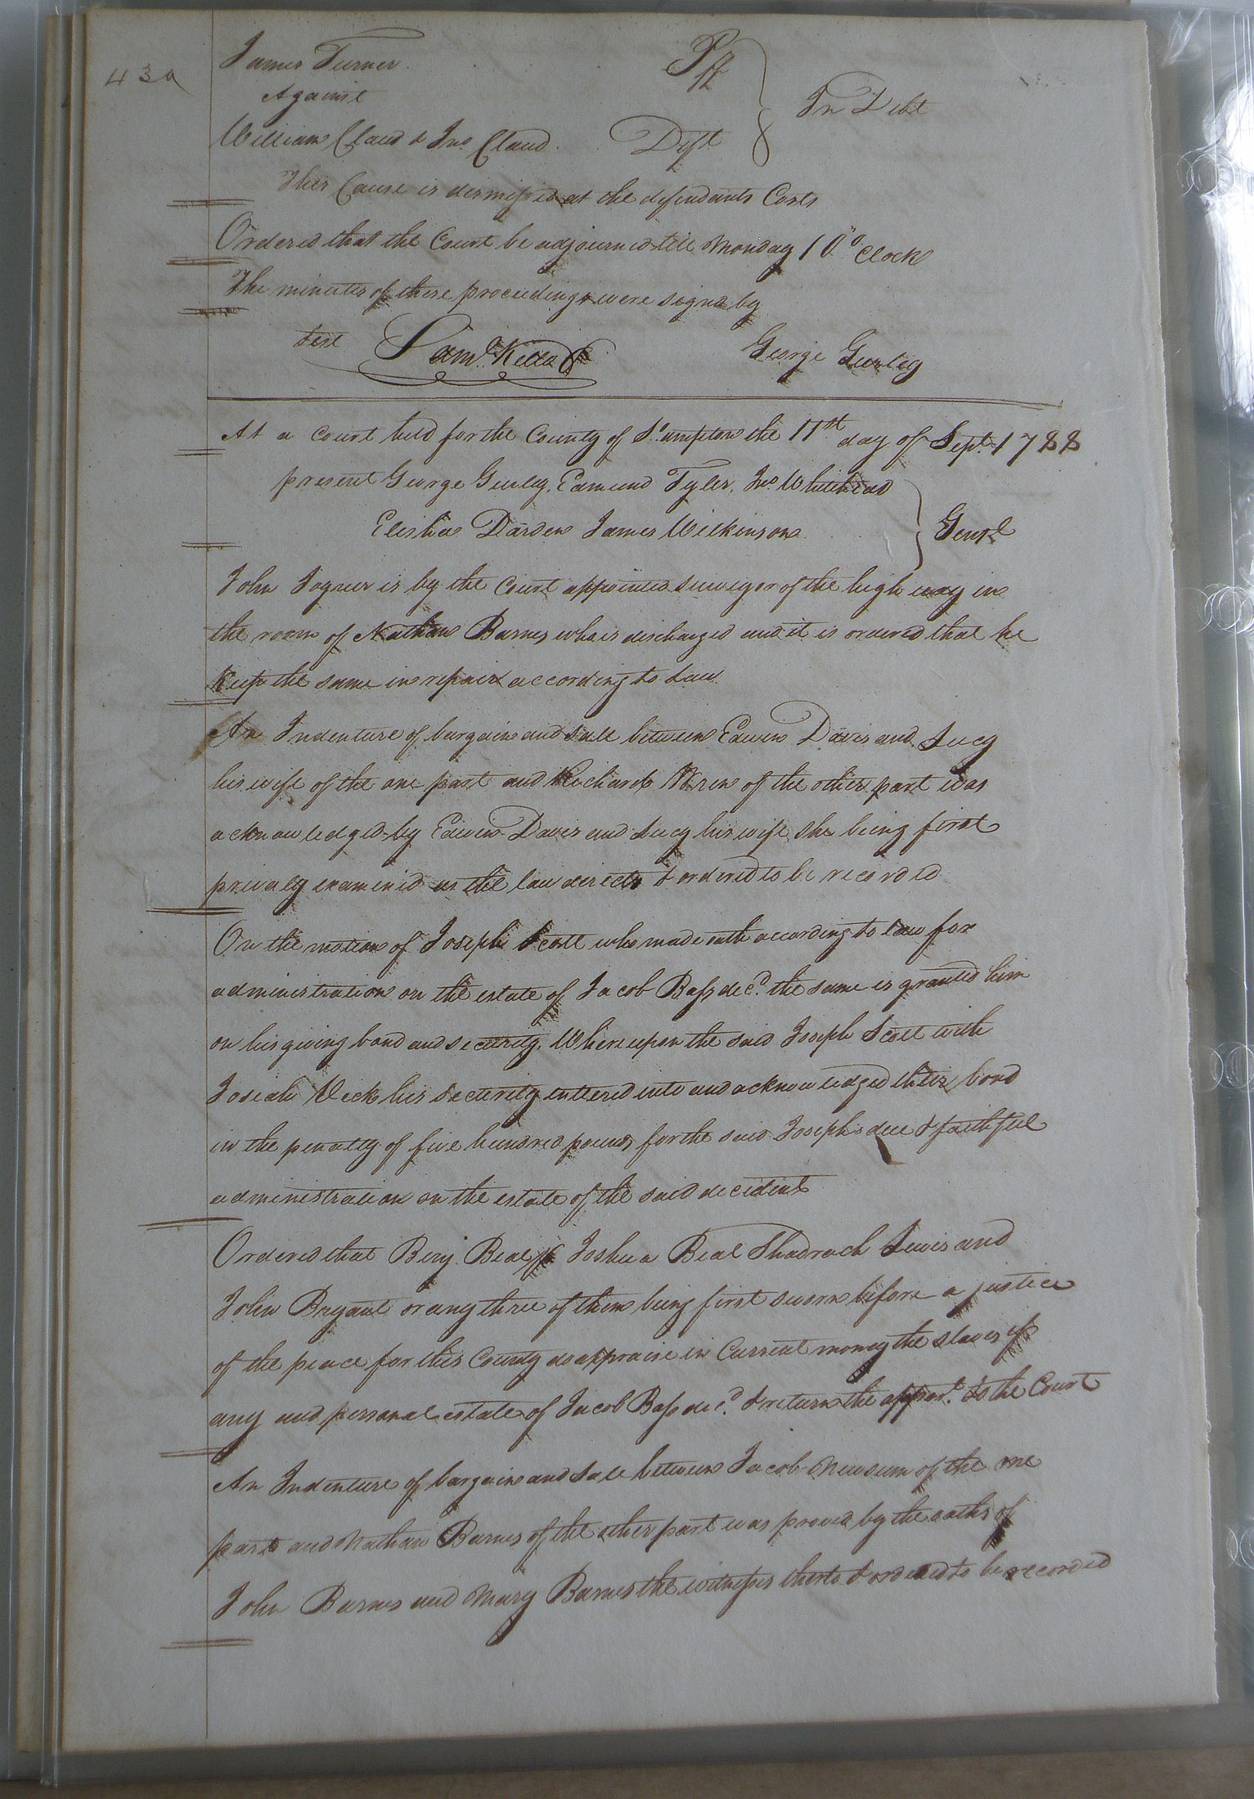 43a
James Turner Plt
Against In Debt
William Claud & Jno. Claud. Deft
This Cause is dismissed at the defendants Costs
Ordered that the Court be adjourned till Monday 10 o'Clock
The minutes of these proceedings were signd by
Test Saml. Kello George Gurley
At a Court held for the County of So.ampton the 11th day of Sept. 1788
present George Gurley, Edmund Tyler, Jno. Whitehead
Elisha Darden James Wilkinson Gent
John Joyner is by the Court appointed surveyor of the high way in
the room of Nathan Barnes who is discharged and it is ordered that he
Keep the same in repair according to Law
An Indenture of bargain and Sale between Edwin Davis and Lucy
his wife of the one part and Richard Wren of the other part was
acknowledged by Edwin Davis and Lucy his wife she being first
privaly examined as the law directs & ordered to be recorded
On the motion of Joseph Scott who made oath according to law for
administration on the estate of Jacob Bass decd. the same is granted him
on his giving bond and security. Whereupon the said Joseph Scott with
Josiah Vick his security entered into and acknowledged their bond
in the penalty of five hundred pounds for the said Joseph's due & faithful
administration on the estate of the said decedent
Ordered that Benj. Beal, Joshua Beal Shadrach Lewis and
John Bryant or any three of them being first sworn before a justice
of the peace for this County do appraise in Current money the slaves if
any and personal estate of Jacob Bass decd. & return the apprait. to the Court
An Indenture of bargain and Sale between Jacob Newsum of the one
part and Nathan Barnes of the other part was proved by the oaths of
John Barnes and Mary Barnes the witnesses thereto & ordered to be recorded